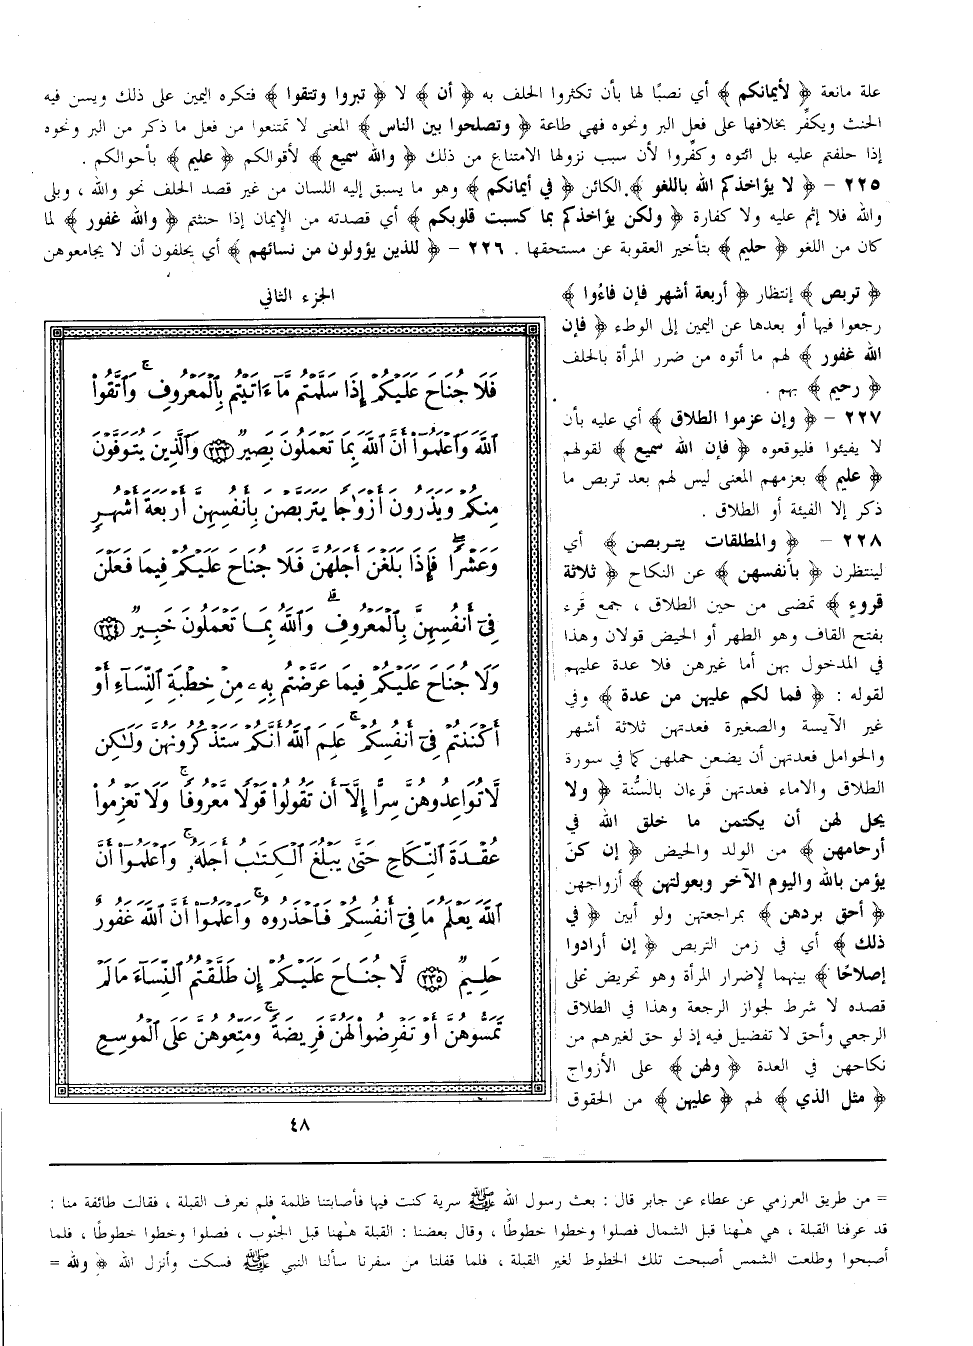 علة مانعة ﴿ لأيمانكم ﴾ أي نصبًا لها بأن تكثروا الحلف به ﴿ أن ﴾ لا ﴿ تبروا وتتقوا ﴾ فتكره اليمين على ذلك ويسن فيه
الحنث ويكفِّر بخلافها على فعل البر ونحوه فهي طاعة ﴿ وتصلحوا بين الناس ﴾ المعنى لا تمتنعوا من فعل ما ذكر من البر ونحوه
إذا حلفتم عليه بل ائتوه وكفِّروا لأن سبب نزولها الامتناع من ذلك ﴿ والله سميع ﴾ لأقوالكم ﴿ عليم ﴾ بأحوالكم .
٢٢٥ – ﴿ لا يؤاخذكم الله باللغو ﴾ الكائن ﴿ في أيمانكم ﴾ وهو ما يسبق إليه اللسان من غير قصد الحلف نحو والله ، وبلى
والله فلا إثم عليه ولا كفارة ﴿ ولكن يؤاخذكم بما كسبت قلوبكم ﴾ أي قصدته من الإيمان إذا حنثتم ﴿ والله غفور ﴾ لما
كان من اللغو ﴿ حليم ﴾ بتأخير العقوبة عن مستحقها . ٢٢٦ – ﴿ للذين يؤولون من نسائهم ﴾ أي يحلفون أن لا يجامعوهن
﴿ تربص ﴾ إنتظار ﴿ أربعة أشهر فإن فاءُوا ﴾
رجعوا فيها أو بعدها عن اليمين إلى الوطء ﴿ فإن
الله غفور ﴾ لهم ما أتوه من ضرر المرأة بالحلف
﴿ رحيم ﴾ بهم .
٢٢٧ – ﴿ وإن عزموا الطلاق ﴾ أي عليه بأن
لا يفيئوا فليوقعوه ﴿ فإن الله سميع ﴾ لقولهم
﴿ عليم ﴾ بعزمهم المعنى ليس لهم بعد تربص ما
ذكر إلا الفيئة أو الطلاق .
٢٢٨ – ﴿ والمطلقات يتربصن ﴾ أي
لينتظرن ﴿ بأنفسهن ﴾ عن النكاح ﴿ ثلاثة
قروءٍ ﴾ تمضى من حين الطلاق ، جمع قَرء
بفتح القاف وهو الطهر أو الحيض قولان وهذا
في المدخول بهن أما غيرهن فلا عدة عليهم
لقوله : ﴿ فما لكم عليهن من عدة ﴾ وفي
غير الآيسة والصغيرة فعدتهن ثلاثة أشهر
والحوامل فعدتهن أن يضعن حملهن كما في سورة
الطلاق والاماء فعدتهن قَرءان بالسُّنة ﴿ ولا
يحل لهن أن يكتمن ما خلق الله في
أرحامهن ﴾ من الولد والحيض ﴿ إن كنّ
يؤمن بالله واليوم الآخر وبعولتهن ﴾ أزواجهن
﴿ أحق بردهن ﴾ بمراجعتهن ولو أبين ﴿ في
ذلك ﴾ أي في زمن التربص ﴿ إن أرادوا
إصلاحًا ﴾ بينهما لإضرار المرأة وهو تحريض على
قصده لا شرط لجواز الرجعة وهذا في الطلاق
الرجعي وأحق لا تفضيل فيه إذ لو حق لغيرهم من
نكاحهن في العدة ﴿ ولهن ﴾ على الأزواج
﴿ مثل الذي ﴾ لهم ﴿ عليهن ﴾ من الحقوق
الجزء الثاني
فَلَا جُنَاحَ عَلَيْكُمْ إِذَا سَلَّمْتُم مَّآ ءَاتَيْتُم بِٱلْمَعْرُوفِ ۗ وَٱتَّقُوا۟
ٱللَّهَ وَٱعْلَمُوٓا۟ أَنَّ ٱللَّهَ بِمَا تَعْمَلُونَ بَصِيرٌ ﴿٢٣٣﴾ وَٱلَّذِينَ يُتَوَفَّوْنَ
مِنكُمْ وَيَذَرُونَ أَزْوَٰجًا يَتَرَبَّصْنَ بِأَنفُسِهِنَّ أَرْبَعَةَ أَشْهُرٍ
وَعَشْرًا ۖ فَإِذَا بَلَغْنَ أَجَلَهُنَّ فَلَا جُنَاحَ عَلَيْكُمْ فِيمَا فَعَلْنَ
فِىٓ أَنفُسِهِنَّ بِٱلْمَعْرُوفِ ۗ وَٱللَّهُ بِمَا تَعْمَلُونَ خَبِيرٌ ﴿٢٣٤﴾
وَلَا جُنَاحَ عَلَيْكُمْ فِيمَا عَرَّضْتُم بِهِۦ مِنْ خِطْبَةِ ٱلنِّسَآءِ أَوْ
أَكْنَنتُمْ فِىٓ أَنفُسِكُمْ ۚ عَلِمَ ٱللَّهُ أَنَّكُمْ سَتَذْكُرُونَهُنَّ وَلَٰكِن
لَّا تُوَاعِدُوهُنَّ سِرًّا إِلَّآ أَن تَقُولُوا۟ قَوْلًا مَّعْرُوفًا ۚ وَلَا تَعْزِمُوا۟
عُقْدَةَ ٱلنِّكَاحِ حَتَّىٰ يَبْلُغَ ٱلْكِتَٰبُ أَجَلَهُۥ ۚ وَٱعْلَمُوٓا۟ أَنَّ
ٱللَّهَ يَعْلَمُ مَا فِىٓ أَنفُسِكُمْ فَٱحْذَرُوهُ ۚ وَٱعْلَمُوٓا۟ أَنَّ ٱللَّهَ غَفُورٌ
حَلِيمٌ ﴿٢٣٥﴾ لَّا جُنَاحَ عَلَيْكُمْ إِن طَلَّقْتُمُ ٱلنِّسَآءَ مَا لَمْ
تَمَسُّوهُنَّ أَوْ تَفْرِضُوا۟ لَهُنَّ فَرِيضَةً ۚ وَمَتِّعُوهُنَّ عَلَى ٱلْمُوسِعِ
٤٨
= من طريق العرزمي عن عطاء عن جابر قال : بعث رسول الله ﷺ سرية كنت فيها فأصابتنا ظلمة فلم نعرف القبلة ، فقالت طائفة منا :
قد عرفنا القبلة ، هي هٰهنا قبل الشمال فصلوا وخطوا خطوطًا ، وقال بعضنا : القبلة هٰهنا قبل الجنوب ، فصلوا وخطوا خطوطًا ، فلما
أصبحوا وطلعت الشمس أصبحت تلك الخطوط لغير القبلة ، فلما قفلنا من سفرنا سألنا النبي ﷺ فسكت وأنزل الله ﴿ ولله =